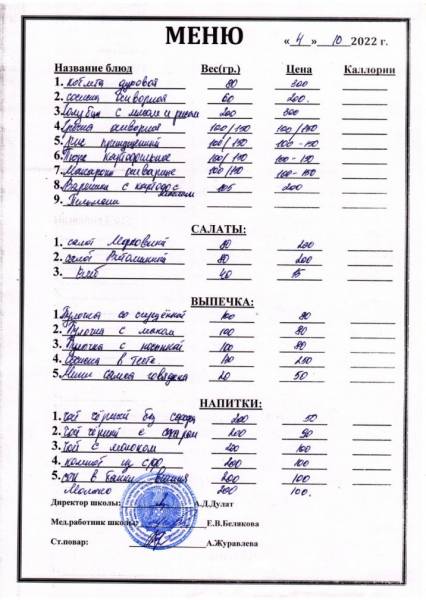 МЕНЮ
«4» 10 2022 г.
Название блюд Вес(гр.) Цена Каллории
1. котлета 80 300
2. сосиска отварная 60 200.
3. Голубцы с мясом и рисом 200 300
4. Гречка отварная 100/150 100/150
5. Рис припущенный 100/150 100-150
6. Пюре картофельное 100/150 100-150
7. Макароны отварные 100/150 100-150
8. Вареники с картофелем 105 200
9. Пельмени
САЛАТЫ:
1. салат Морковный 80
2. салат Витаминный 80 200
3. Хлеб 40 15
ВЫПЕЧКА:
1. Булочка со сгущёнкой 100 80
2. Булочка с маком 100 80
3. Булочка с 100 80
4. Сосиска в тесте 250
5. Мини самса говядина 20 50
НАПИТКИ:
1. чай чёрный без сахара 200 50
2. чай чёрный с сахаром 200
3. чай с молоком 200 100
4. компот из с/ф 200 100
5. сок в 200 100
Молоко 200 100.
Директор школы: А.Д.Дулат
Мед.работник школы: Е.В.Белякова
Ст.повар: А.Журавлева